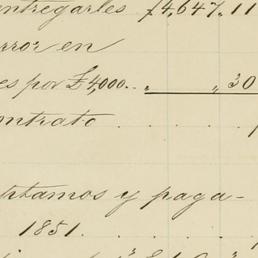 entregarles £4,647,,11
error en
es por £4,000.. ,, ,,30
ntrato . . . .
stamos y paga-
1851. . . .